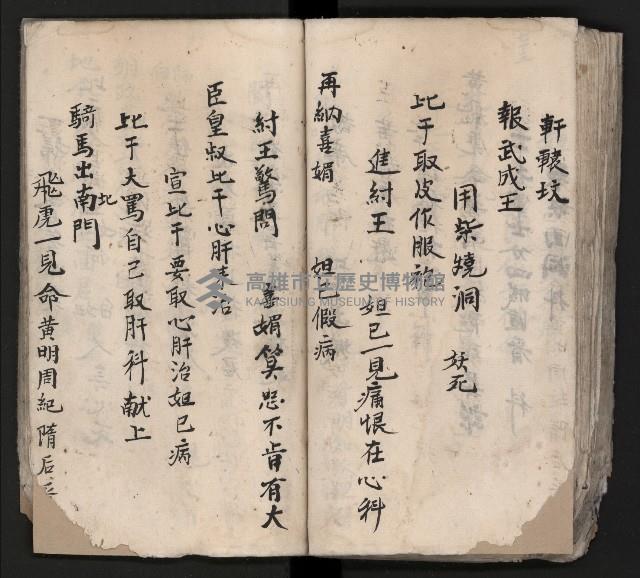 軒轅坟
報武成王
用柴燒洞 妖死
比干取皮作服
進紂王 妲己一見痛恨在心科
再納喜媚 妲假病
紂王驚問 喜媚算恕不肯有大
臣皇叔比干心肝 治
宣比干要取心肝治妲己病
比干大罵自己取肝科献上
騎馬出南北門
飛虎一見命黃明周紀隋后
高雄市立歷史博物館
KAOHSIUNG MUSEUM OF HISTORY